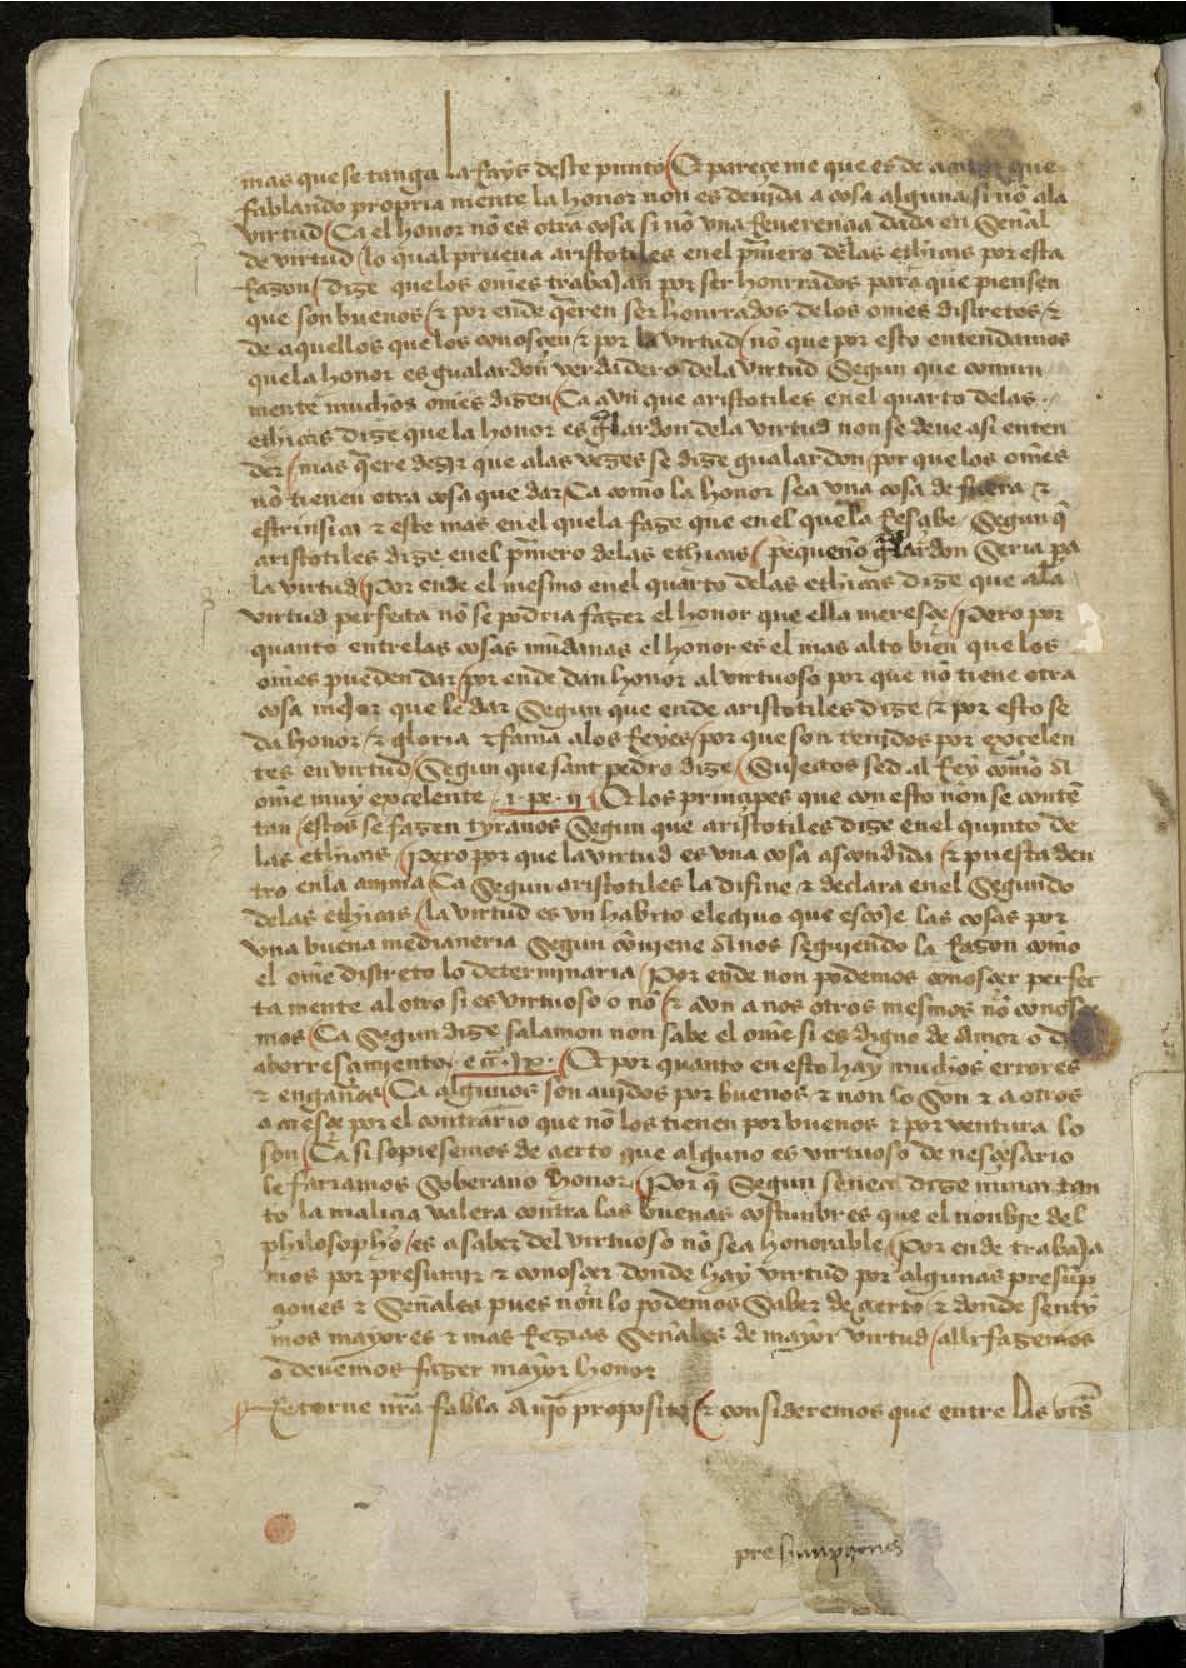 mas que se tanga la Rayz deste punto / Et pareçe me que es de que
fablando propria mente la honor non es deuida a cosa alguna si nõ ala
virtud / Ca el honor nõ es otra cosa si nõ vna Reuerençia dada en Señal
de virtud / lo qual prueua aristotiles enel pͥmero delas ethicas por esta
Razon / dize que los omẽs trabajan por ser honrrados para que piensen
que son buenos / ⁊ por ende q̃eren ser honrrados delos omẽs discretos / ⁊
de aquellos que los conosçen / ⁊ por la virtud / nõ que por esto entendamos
que la honor es gualardon verdadero dela virtud Segun que comun
mente muchos omẽs dizen / Ca avn que aristotiles enel quarto delas
ethicas dize que la honor es gͣlardon dela virtud non se deue asi enten
der / mas q̃ere dezir que alas vezes se dize gualardon / por que los omẽs
nõ tienen otra cosa que dar / Ca como la honor sea vna cosa de fuera ⁊
estrinsica ⁊ este mas enel que la faze que enel que la Resçibe / Segun q̃
aristotiles dize enel pͥmero delas ethicas / pequeño gͣlardon Seria pͣa
la virtud / Por ende el mesmo enel quarto delas ethicas dize que ala
virtud perfecta nõ se podria fazer el honor que ella meresçe / Pero por
quanto entre las cosas mũdanas el honor es el mas alto bien que los
omẽs pueden dar / por ende dan honor al virtuoso por que nõ tiene otra
cosa mejor que le dar Segun que ende aristotiles dize / ⁊ por esto se
da honor / ⁊ gloria ⁊ fama alos Reyes / por que son tenjdos por exçelen
tes en virtud / Segun que sant pedro dize / Sujectos sed al Rey como a
omẽ muy exçelente / .i. pe. ij / Et los prinçipes que con esto non se contẽ
tan / estos se fazen tyranos Segun que aristotiles dize enel quinto de
las ethicas / Pero por que la virtud es vna cosa ascondida / ⁊ puesta den
tro enla anima / Ca Segun aristotiles la difine ⁊ declara enel Segundo
delas ethicas / la virtud es vn habito electiuo que escoje las cosas por
vna buena medianeria Segun cõuiene a nos seguiendo la Razon como
el omẽ discreto lo determinaria / Por ende non podemos conosçer perfec
ta mente al otro si es virtuoso o nõ / ⁊ avn a nos otros mesmos nõ conosçe
mos / Ca Segun dize salamon non sabe el omẽ si es digno de amor o de
aborresçimiento. ecc̃. ix. / Et por quanto en esto hay muchos errores
⁊ engaños / Ca algunos son auidos por buenos ⁊ non lo Son ⁊ a otros
acaesçe por el contrario que nõ los tienen por buenos ⁊ por ventura lo
son / Ca si sopiesemos de çierto que alguno es virtuoso de nesçesario
le fariamos Soberano honor / Por q̃ Segun seneca dize nunca tan
to la maliçia valera contra las buenas costunbres que el nonbre del
philosopho / es a saber del virtuoso nõ sea honorable / Por ende trabaja
mos por presumir ⁊ conosçer donde hay virtud por algunas presũp
çiones ⁊ Señales pues non lo podemos Saber de çierto / ⁊ donde senty
mos mayores ⁊ mas Rezias Señales de mayor virtud / alli fazemos
o deuemos fazer mayor honor
Retorne nr̃a fabla a nr̃o proposito / ⁊ consideremos que entre las vt̃s
presumpçiones